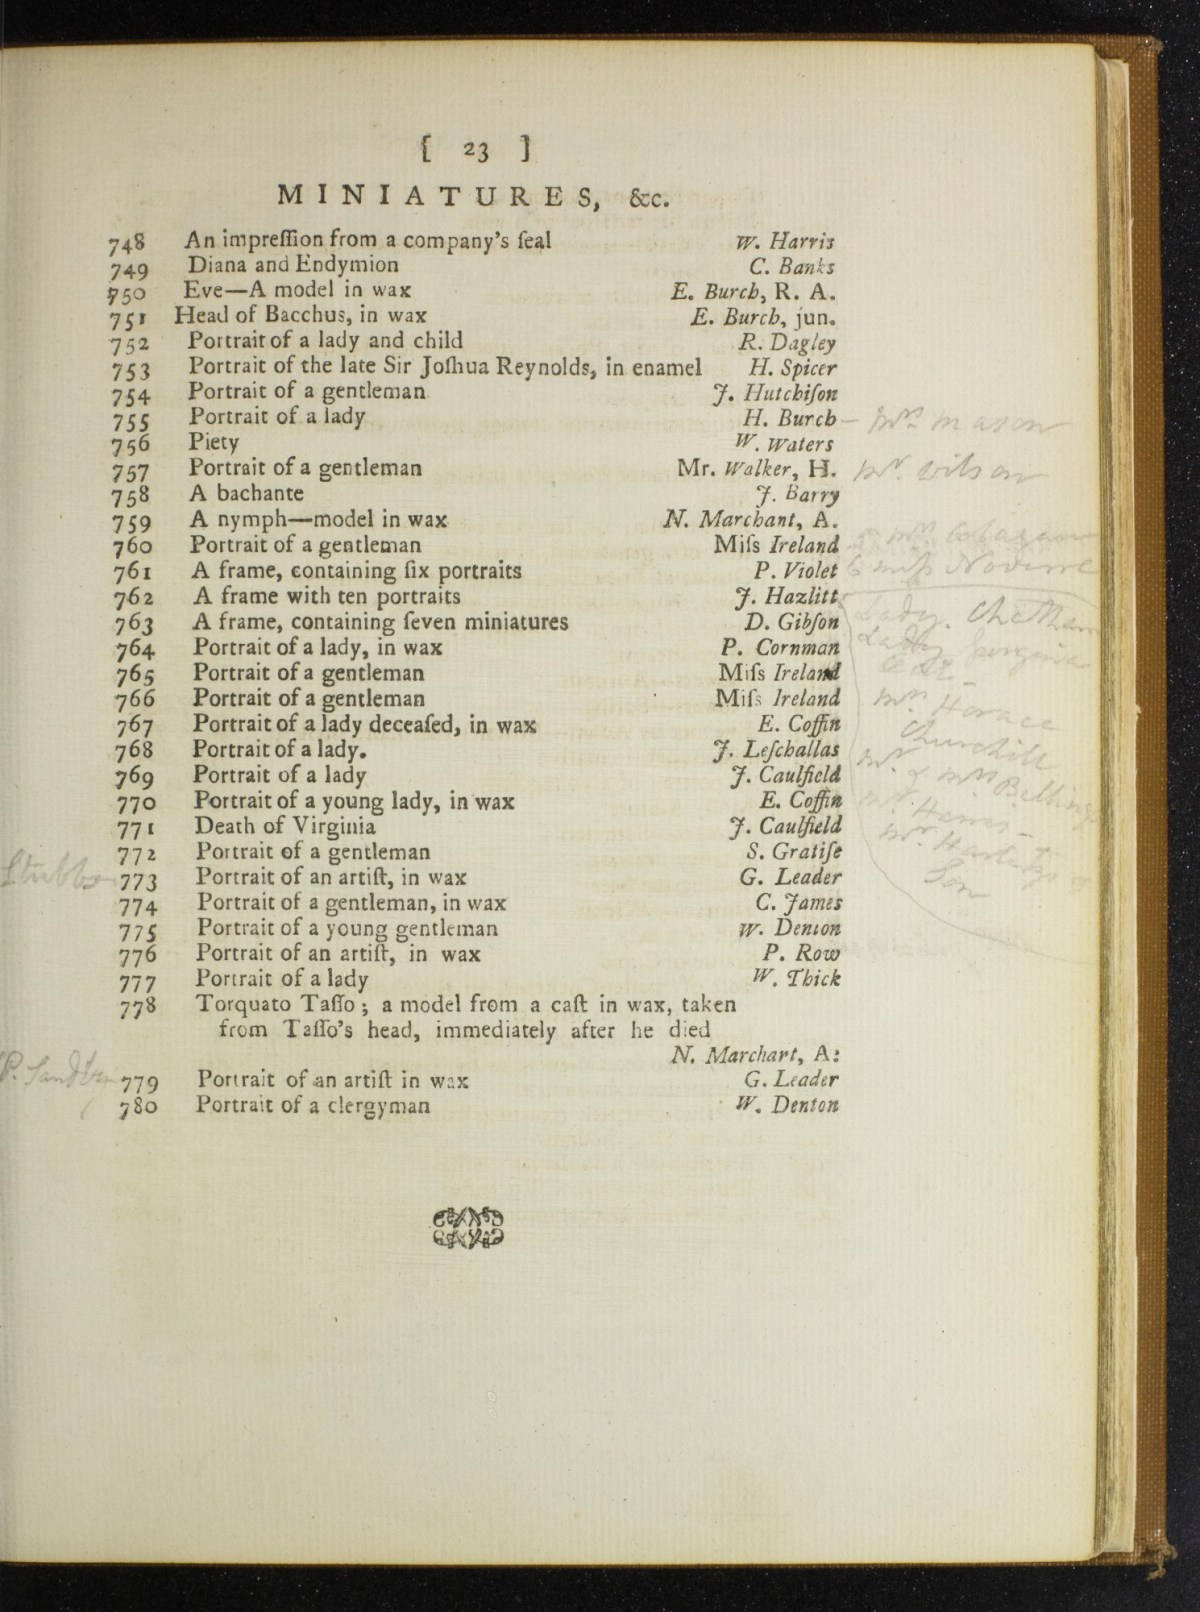 [ 23 ]
MINIATURES, &c.
748 An impreſſion from a company's ſeal W. Harris
749 Diana and Endymion C. Banks
750 Eve—A model in wax E. Burch, R. A.
751 Head of Bacchus, in wax E. Burch, jun.
752 Portrait of a lady and child R. Dagley
753 Portrait of the late Sir Joſhua Reynolds, in enamel H. Spicer
754 Portrait of a gentleman J. Hutchiſon
755 Portrait of a lady H. Burch – Mrs. Mason
756 Piety W. Waters
757 Portrait of a gentleman Mr. Walker, H. Mr. Wilson
758 A bachante J. Barry
759 A nymph—model in wax N. Marchant, A.
760 Portrait of a gentleman Miſs Ireland
761 A frame, containing ſix portraits P. Violet
762 A frame with ten portraits J. Hazlitt
763 A frame, containing ſeven miniatures D. Gibſon Lady
764 Portrait of a lady, in wax P. Cornman Lady
765 Portrait of a gentleman Miſs Ireland
766 Portrait of a gentleman Miſs Ireland Mrs. Horace
767 Portrait of a lady deceaſed, in wax E. Coffin Churchill
768 Portrait of a lady. J. Leſchallas
769 Portrait of a lady J. Caulfield Mr. & Mrs.
770 Portrait of a young lady, in wax E. Coffin
771 Death of Virginia J. Caulfield
772 Portrait of a gentleman S. Gratiſe
Stubbs 773 Portrait of an artiſt, in wax G. Leader Son
774 Portrait of a gentleman, in wax C. James
775 Portrait of a young gentleman W. Denton
776 Portrait of an artiſt, in wax P. Row
777 Portrait of a lady W. Thick
778 Torquato Taſſo; a model from a caſt in wax, taken
from Taſſo's head, immediately after he died
N. Marchart, A:
P. Sandby 779 Portrait of an artiſt in wax G. Leader
780 Portrait of a clergyman W. Denton